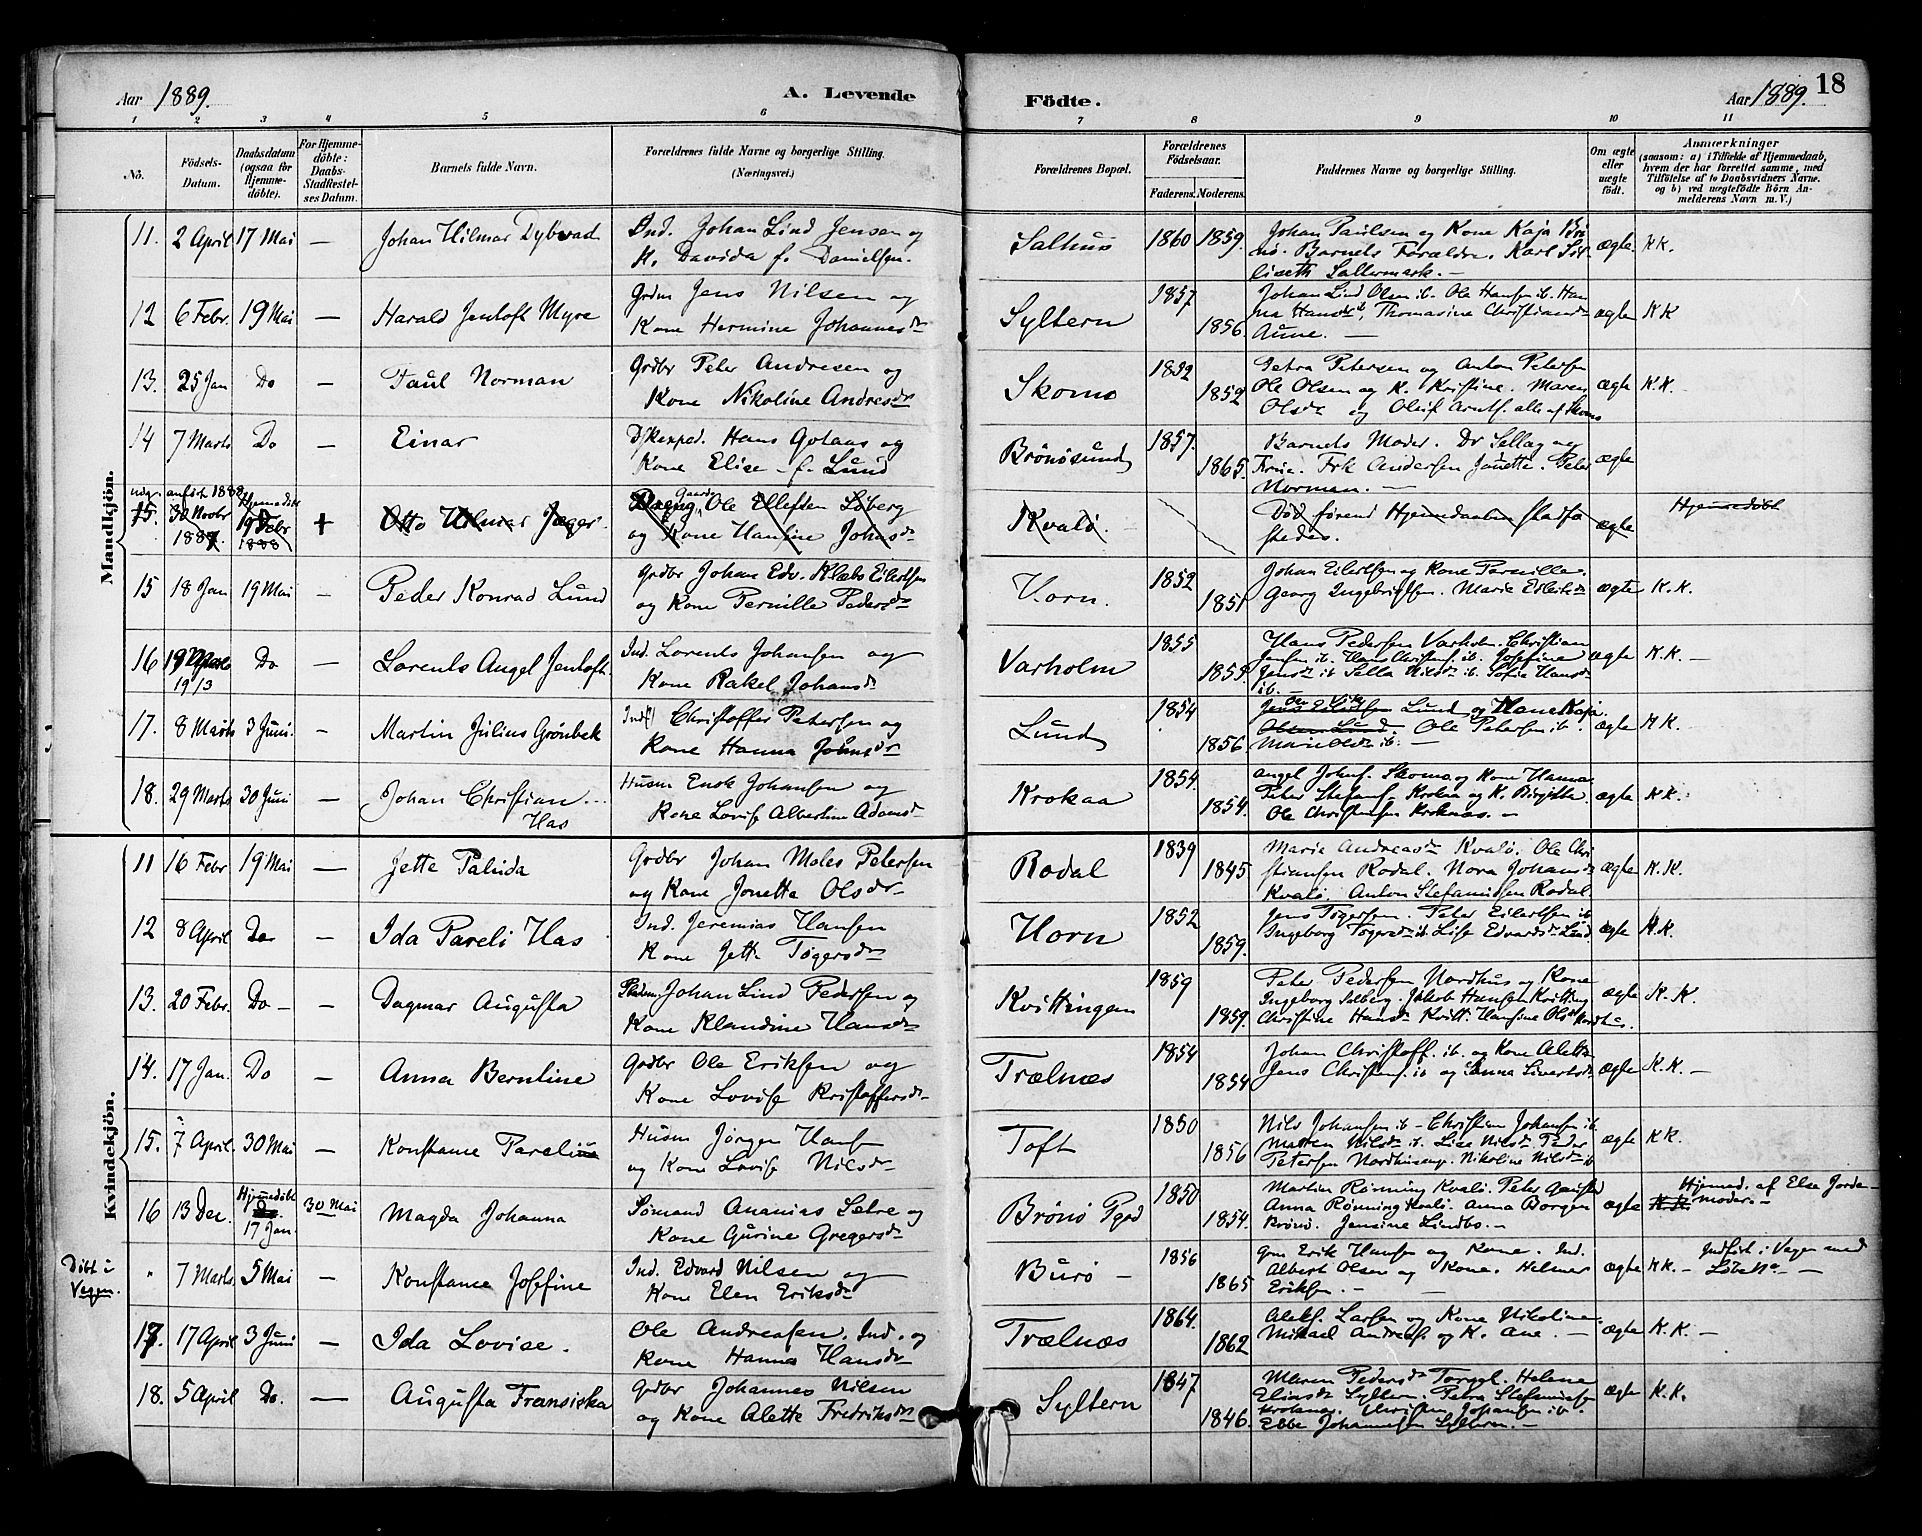 Aar 1889. A. Levende Födte. Aar 1889. 18
1 2 3 4 5 6 7 8 8 9 10 11
No. Födsels-Datum. Daabsdatum (ogsaa for Hjemmedöbte). For Hjemmedöbte: Daabs-Stadfæstelses Datum. Barnets fulde Navn. Forældrenes fulde Navne og borgerlige Stilling. (Næringsvei.) Forældrenes Bopæl. Forældrenes Födselsaar. Faderens. Moderens. Faddernes Navne og borgerlige Stilling. Om ægte eller uægte födt. Anmærkninger (saasom: a) i Tilfælde af Hjemmedaab, hvem der har forrettet samme, med Tilföielse af to Daabsvidners Navne. og b) ved uægtefödte Börn Anmelderens Navn m. V.)
Mandkjön.
11. 2 April 17 Mai — Johan Hilmar Dybwad Ind. Johan Lind Jensen og K. Davida f. Danielsen. Salhus 1860 1859. Johan Paulsen og Kone Kaja Brönö. Barnets Forældre. Karl ægte KK.
12 6 Febr. 19 Mai — Harald Jentoft Myre Grdm Jens Nilsen og Kone Hermine Johannesdr Syltern 1857 1856. Johan Lind Olsen ib. Ole Hansen ib. Hanna Hansdr ib, Thomasine Christiansdr Aune. — ægte KK
13. 25 Jan Do — Paul Norman Grdbr Peter Andresen og Kone Nikoline Andresdr Skomo 1832 1852 Petra Petersen og Anton Petersen Ole Olsen og K. Kristine. Maren Olsdr og Oluf Arntf. alle af Skomo ægte K.K.
14 7 Marts Do — Einar Hans Gotaas og Kone Elise — f. Lund Brönösund 1857. 1865. Barnets Moder. Dr Sellag og Frue. Frk Andersen Jonette. Peter Norman. — ægte
15. anfört 1888 30 Novbr 1887. Hjemmedöbt 19 Febr 1888 + Otto Hilmar Jæger. Gaardb Ole Ellefsen Löberg og Kone Hansine Johnsdr Kvalö. Död förend Hjemmedaaben stadfæstedes. ægte Hjemmedöbt
15 18 Jan 19 Mai — Peder Konrad Lund Grdbr Johan Edv. Klæbo Eilertsen og Kone Pernille Pedersdr Horn. 1852 1851 Johan Eilertsen og Kone Pernille. Georg Ingebrigtsen. Marie ægte K.K.
16 19/3 Do — Lorents Angel Jentoft Ind. Lorents Johansen og Kone Rakel Johansdr Varholm 1855 1859. Hans Pedersen Varholm. Christian Jensen ib. Hans Christens. ib. Josefine Jensdr ib Sella Nilsdr ib. Sofie Hansdr ib. ægte K.K. —
17. 8 Marts 3 Juni. — Martin Julius Grönbek Ind. Christoffer Petersen og Kone Hanna Johnsdr Lund 1854 1856. Lund og Kone Kaja. Ole Petersen ib. Marie Olsdr ib. — ægte KK.
18. 29 Marts 30 Juni — Johan Christian Has Husm Enok Johansen og Kone Lovise Albertine Adamsdr Krokaa 1854. 1854. Angel Johns. Skomo og Kone Hanna. Peter Stefans. Krokaa og K. Birgitte. Ole Christensen Kroknes. — ægte KK.
Kvindekjön.
11 16 Febr 19 Mai — Jette Palnda Grdbr Johan Moles Petersen og Kone Jonetta Olsdr Rodal 1839 1845 Marie Andreasdr Kvalö. Ole Christiansen Rodal. Nora Johansdr Kvalö. Anton Stefanussen Rodal ægte K.K.
12 8 April Do — Ida Pareli Has Ind. Jeremias Hansen Kone Jette Tögersdr Horn 1852 1859. Jens Tögersen. Peter Eilertsen ib Ingeborg Tögersdr ib. Lise Edvardsdr Lund ægte K.K.
13. 20 Febr. Do — Dagmar Augusta Johan Lind Pedersen og Kone Klaudine Hansdr Kvittingen 1859 1859. Peter Pedersen Nordhus og Kone Ingeborg Solberg. Jakob Hansen Kvitting Christine Hansdr Kvitt. Hansine Olsdr Nordhus. ægte K.K.
14. 17 Jan. Do — Anna Berntine Grdbr Ole Eriksen og Kone Lovise Kristoffersdr Trælnæs 1854 1854 Johan Christoff. ib. og Kone Aletta Jens Christens. ib og Anna Sivertsdr ægte K.K. —
15. 7 April. 30 Mai — Konstanse Pareliue Husm Jörgen Hansen og Kone Lovise Nilsdr Toft 1850 1856 Nils Johansen ib — Christian Johansen ib Maren Nilsdr ib. Lise Nilsdr Peder Petersen Nordhus og Nikoline Nilsdr ib ægte KK.
16 13 Dec. Hjemmedöbt 17 Jan. 30 Mai Magda Johanna Sömand Ananias Setre og Kone Gurine Gregersdr Brönö Pgd 1850 1854. Martin Rönning Kvalö. Peter Anna Rönning Kvalö. Anna Borgen Brönö. Jensine Lindbo. — ægte K.K. Hjemmed. af Else Jordemoder —
Döbt i Vegen. " 7 Marts. 5 Mai — Konstanse Josefine Ind. Edvard Nilsen og Kone Elen Eriksdr Burö — 1856 1865 Grm Erik Hansen og Kone. Ind. Albert Olsen og Kone. Helmer Eriksen. — ægte KK. — Indfört i Vegen med Löbe No —
17. 17 April 3 Juni — Ida Lovise. Ole Andreasen. Ind. og Kone Hanna Hansdr Trælnæs 1864. 1862 Larsen og Kone Nikoline. Mikael Andreass og K. Ane. — ægte K.K. —
18. 5 April Do. — Augusta Fransiska Grdbr Johannes Nilsen og Kone Aletta Fredriksdr Syltern 1847 1846. Maren Pedersdr Torggl. Helene Eliasdr Syltern. Petra Kroknes. Johansen ib. Ebbe Johannesen Syltern. — ægte K.K.